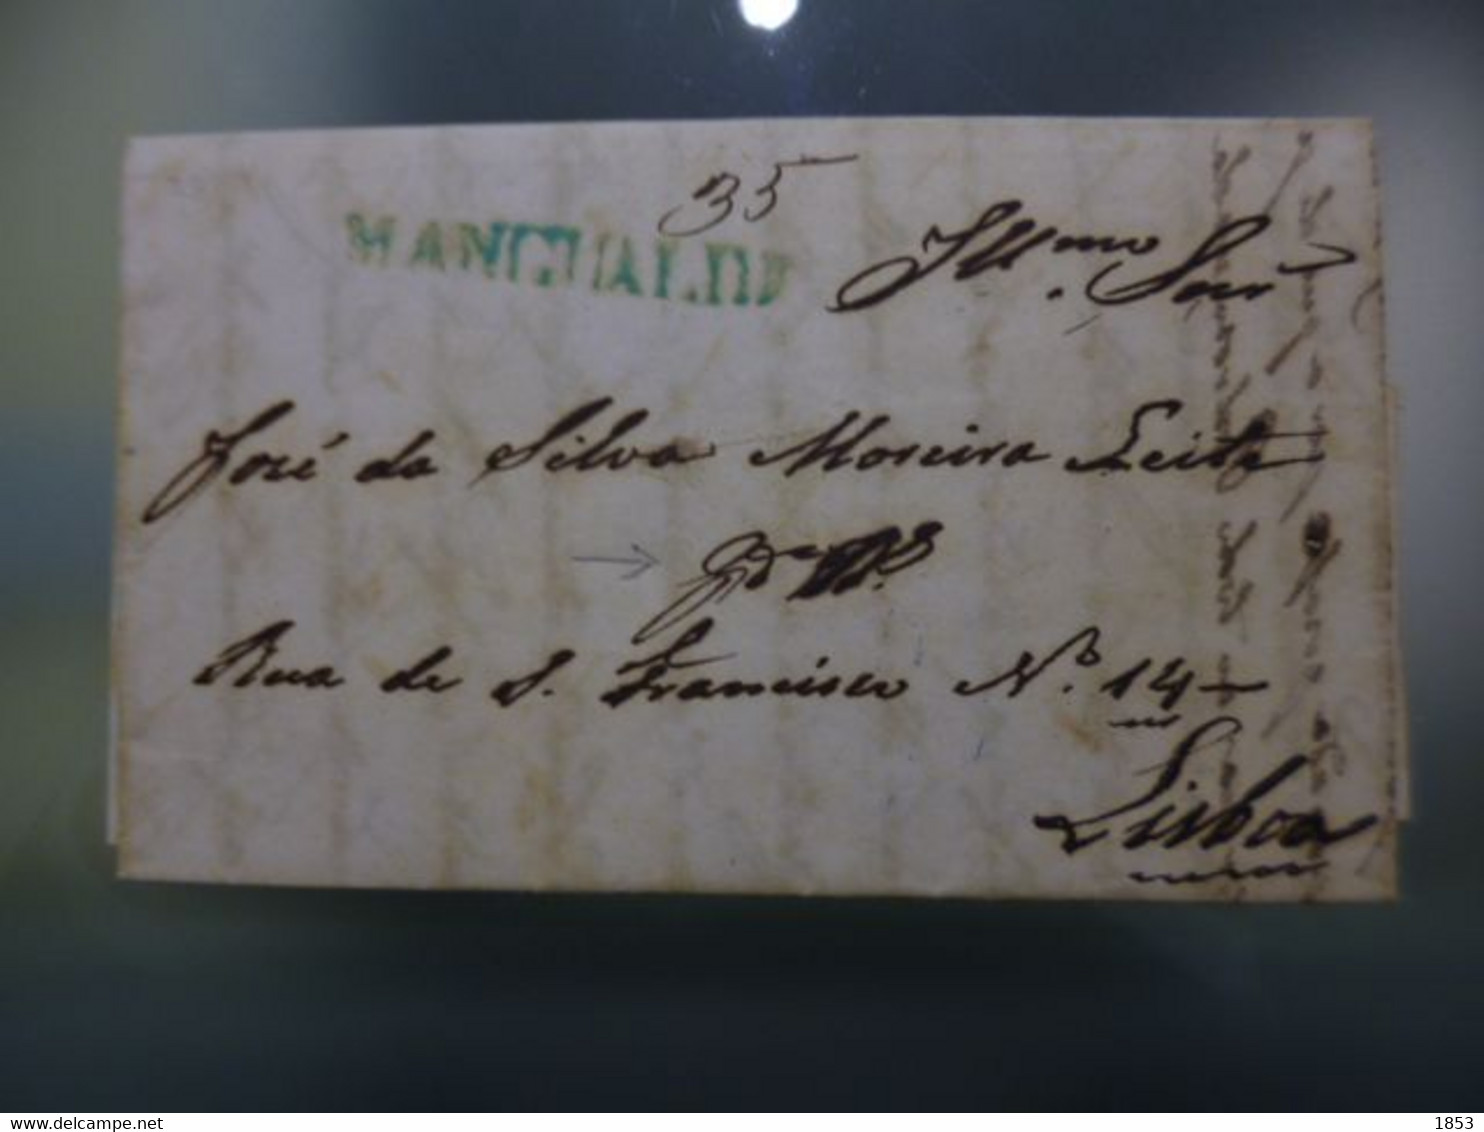 35
MANGUALDE
Illmo. Snr
José da Silva Moreira Leite
Rua de S. Francisco No. 14
Lisboa
delcampe.net
1853